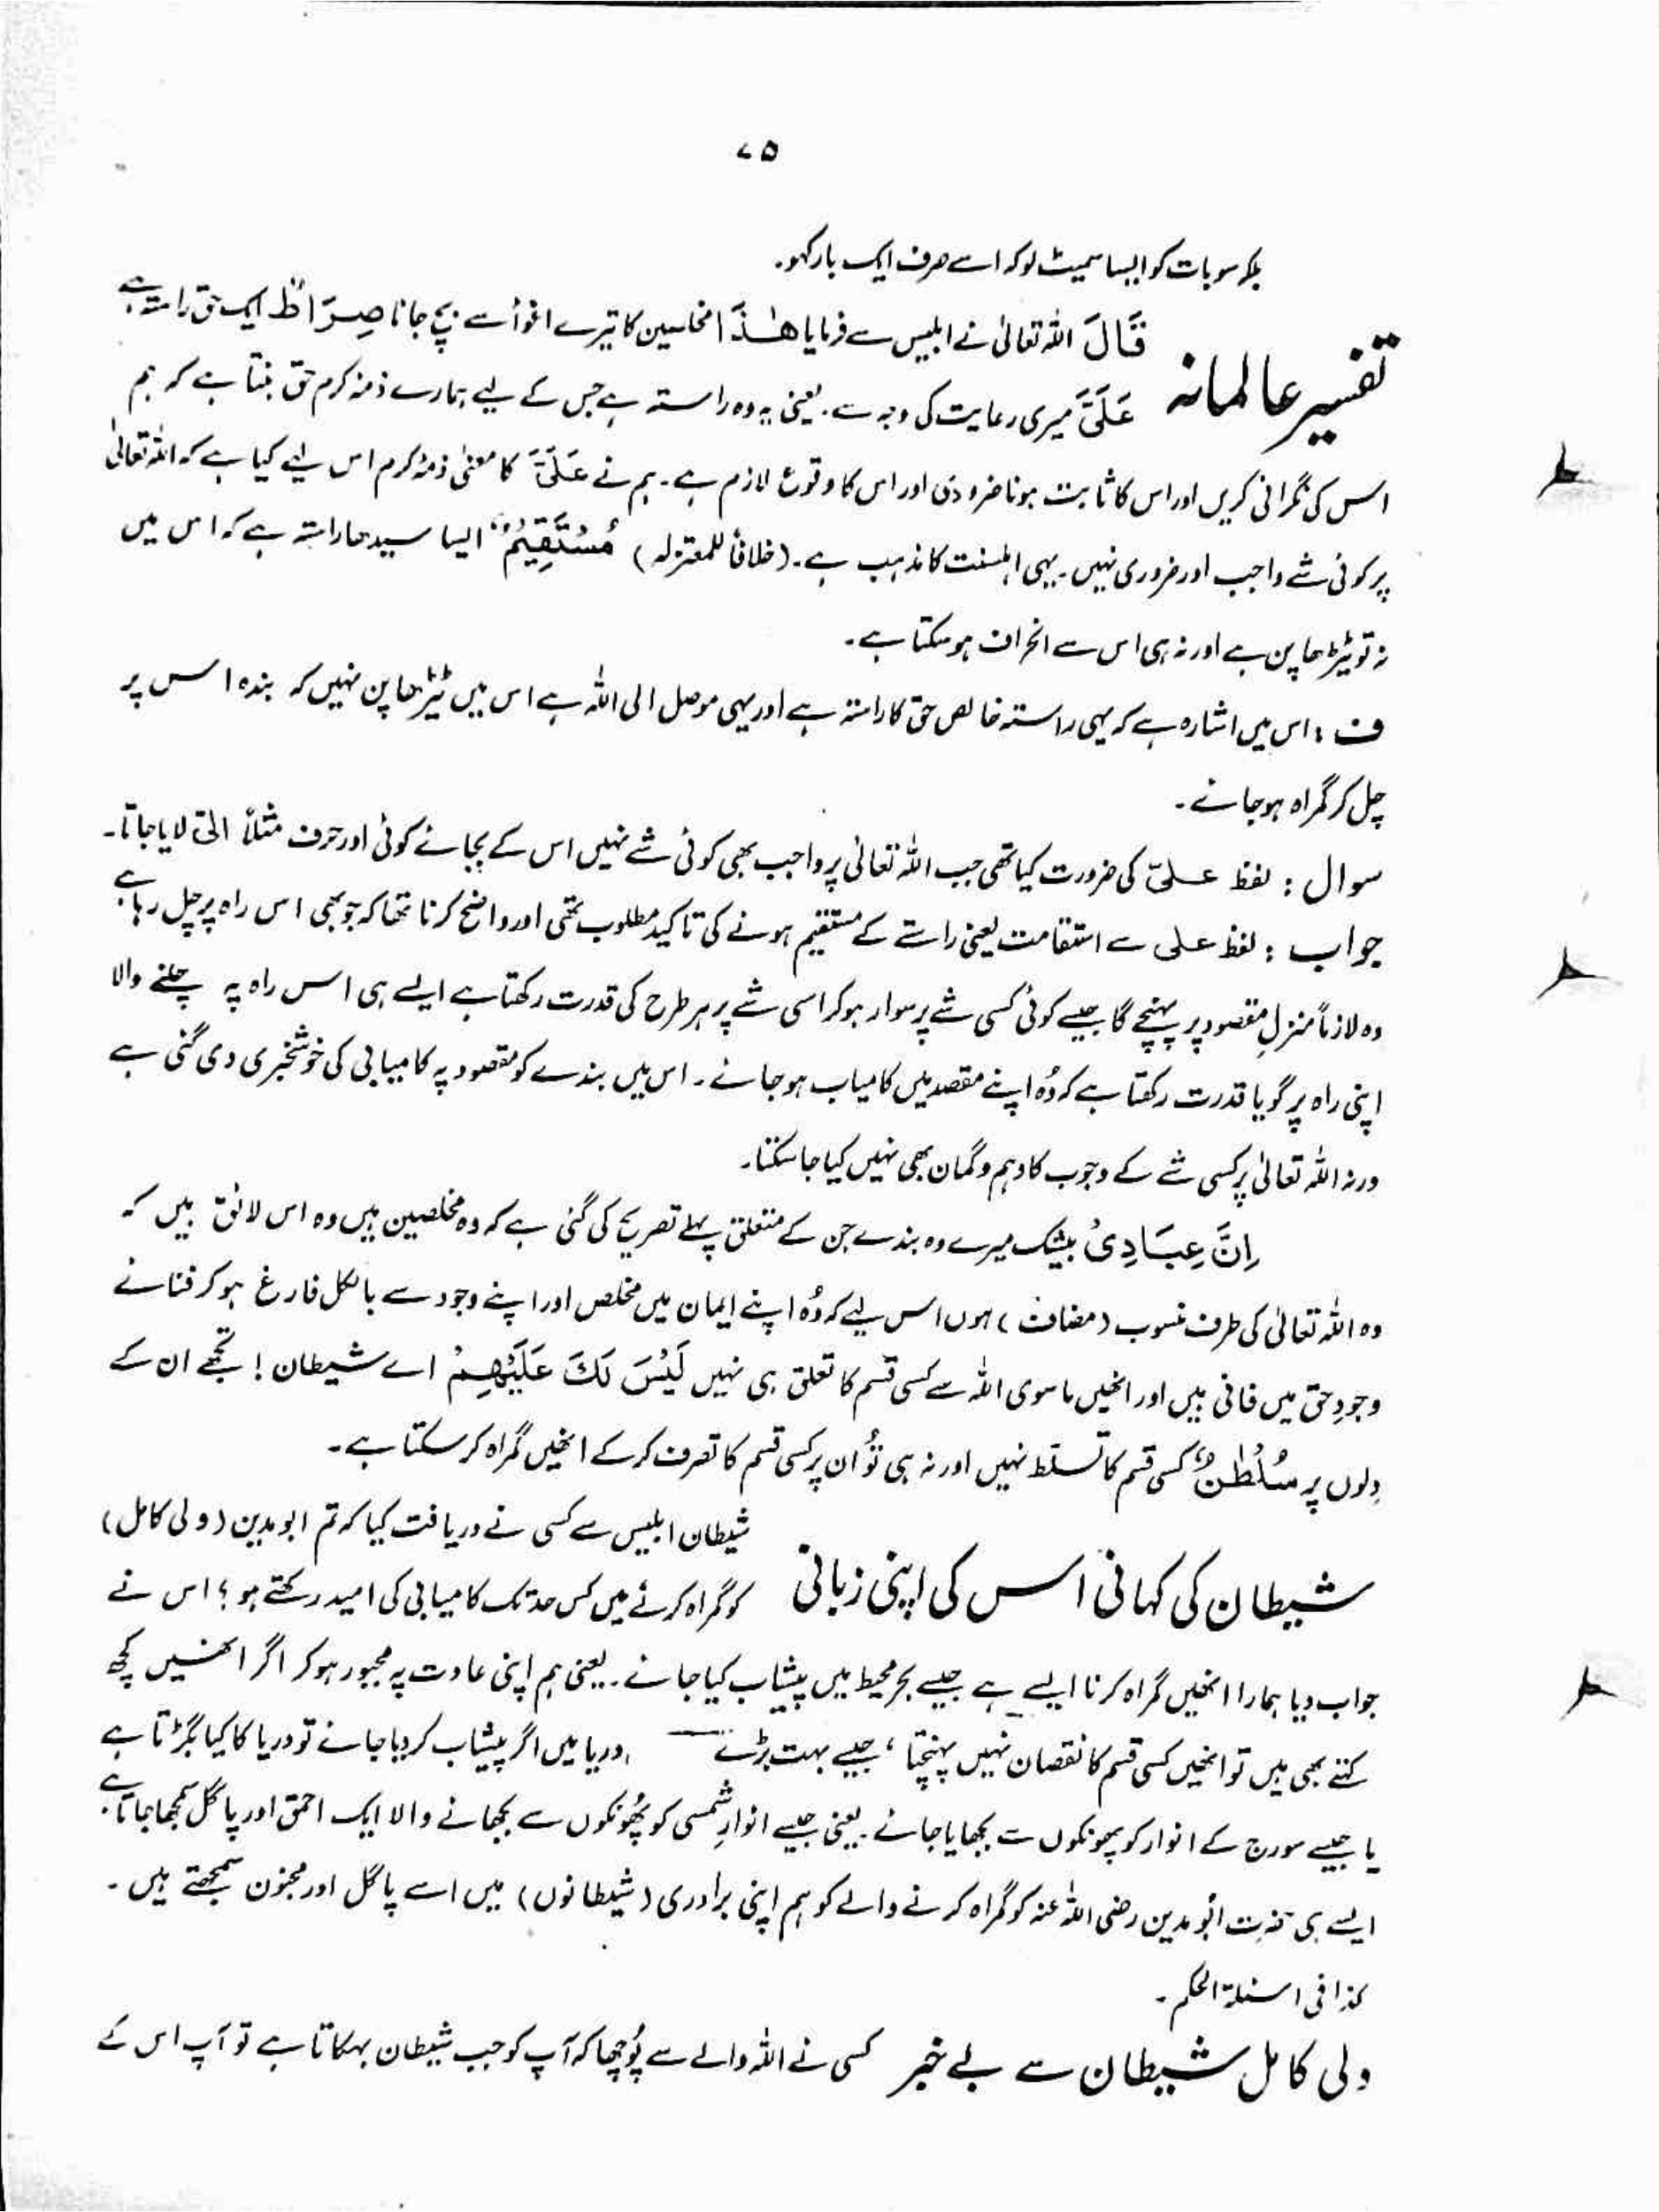 ۷۵
بلکہ سو بات کو ایسا سمیٹ لو کہ اسے صرف ایک بار کہو۔
تفسیر عالمانہ
قَالَ اللہ تعالیٰ نے ابلیس سے فرمایا ھٰذَا مخلصین کا تیرے اغوأ سے بچ جانا صِرَاطٌ ایک حق راستہ ہے
عَلَیَّ میری رعایت کی وجہ سے۔ یعنی یہ وہ راستہ ہے جس کے لیے ہمارے ذمۂ کرم حق بنتا ہے کہ ہم
اس کی نگرانی کریں اور اس کا ثابت ہونا ضروری اور اس کا وقوع لازم ہے۔ ہم نے عَلَیَّ کا معنٰی ذمۂ کرم اس لیے کیا ہے کہ اللہ تعالیٰ
پر کوئی شے واجب اور ضروری نہیں۔ یہی اہلسنت کا مذہب ہے۔ (خلافاً للمعتزلہ) مُسْتَقِیْمٌ ایسا سیدھا راستہ ہے کہ اس میں
نہ تو ٹیڑھا پن ہے اور نہ ہی اس سے انحراف ہو سکتا ہے۔
ف : اس میں اشارہ ہے کہ یہی راستہ خالص حق کا راستہ ہے اور یہی موصل الی اللہ ہے اس میں ٹیڑھا پن نہیں کہ بندہ اس پر
چل کر گمراہ ہو جائے۔
سوال : لفظ علیّ کی ضرورت کیا تھی جب اللہ تعالیٰ پر واجب بھی کوئی شے نہیں اس کے بجائے کوئی اور حرف مثلاً الیّ لایا جاتا۔
جواب : لفظ علی سے استقامت یعنی راستے کے مستقیم ہونے کی تاکید مطلوب تھی اور واضح کرنا تھا کہ جو بھی اس راہ پر چل رہا ہے
وہ لازماً منزلِ مقصود پر پہنچے گا جیسے کوئی کسی شے پر سوار ہو کر اسی شے پر ہر طرح کی قدرت رکھتا ہے ایسے ہی اس راہ پہ چلنے والا
اپنی راہ پر گویا قدرت رکھتا ہے کہ وُہ اپنے مقصد میں کامیاب ہو جائے۔ اس میں بندے کو مقصود پہ کامیابی کی خوشخبری دی گئی ہے
ورنہ اللہ تعالیٰ پر کسی شے کے وجوب کا وہم و گمان بھی نہیں کیا جا سکتا۔
اِنَّ عِبَادِیْ بیشک میرے وہ بندے جن کے متعلق پہلے تصریح کی گئی ہے کہ وہ مخلصین ہیں وہ اس لائق ہیں کہ
وہ اللہ تعالیٰ کی طرف منسوب (مضاف) ہوں اس لیے کہ وُہ اپنے ایمان میں مخلص اور اپنے وجود سے بالکل فارغ ہو کر فنائے
وجودِ حق میں فانی ہیں اور انھیں ماسوی اللہ سے کسی قسم کا تعلق ہی نہیں لَیْسَ لَکَ عَلَیْھِمْ اے شیطان! تجھے ان کے
دِلوں پر سُلْطٰنٌ کسی قسم کا تسلّط نہیں اور نہ ہی تُو ان پر کسی قسم کا تصرف کر کے انھیں گمراہ کر سکتا ہے۔
شیطان کی کہانی اس کی اپنی زبانی
شیطان ابلیس سے کسی نے دریافت کیا کہ تم ابو مدین (ولی کامل)
کو گمراہ کرنے میں کس حد تک کامیابی کی امید رکھتے ہو؟ اس نے
جواب دیا ہمارا انھیں گمراہ کرنا ایسے ہے جیسے بحر محیط میں پیشاب کیا جائے۔ یعنی ہم اپنی عادت پہ مجبور ہو کر اگر انھیں کچھ
کہتے بھی ہیں تو انھیں کسی قسم کا نقصان نہیں پہنچتا، جیسے بہت بڑے دریا میں اگر پیشاب کر دیا جائے تو دریا کا کیا بگڑتا ہے
یا جیسے سورج کے انوار کو پھونکوں سے بجھایا جائے۔ یعنی جیسے انوارِ شمسی کو پُھونکوں سے بجھانے والا ایک احمق اور پاگل سمجھا جاتا ہے
ایسے ہی حضرت ابو مدین رضی اللہ عنہ کو گمراہ کرنے والے کو ہم اپنی برادری (شیطانوں) میں اسے پاگل اور مجنون سمجھتے ہیں۔
کذا فی اسئلۃ الحکم۔
ولی کامل شیطان سے بے خبر کسی نے اللہ والے سے پُوچھا کہ آپ کو جب شیطان بہکاتا ہے تو آپ اس کے